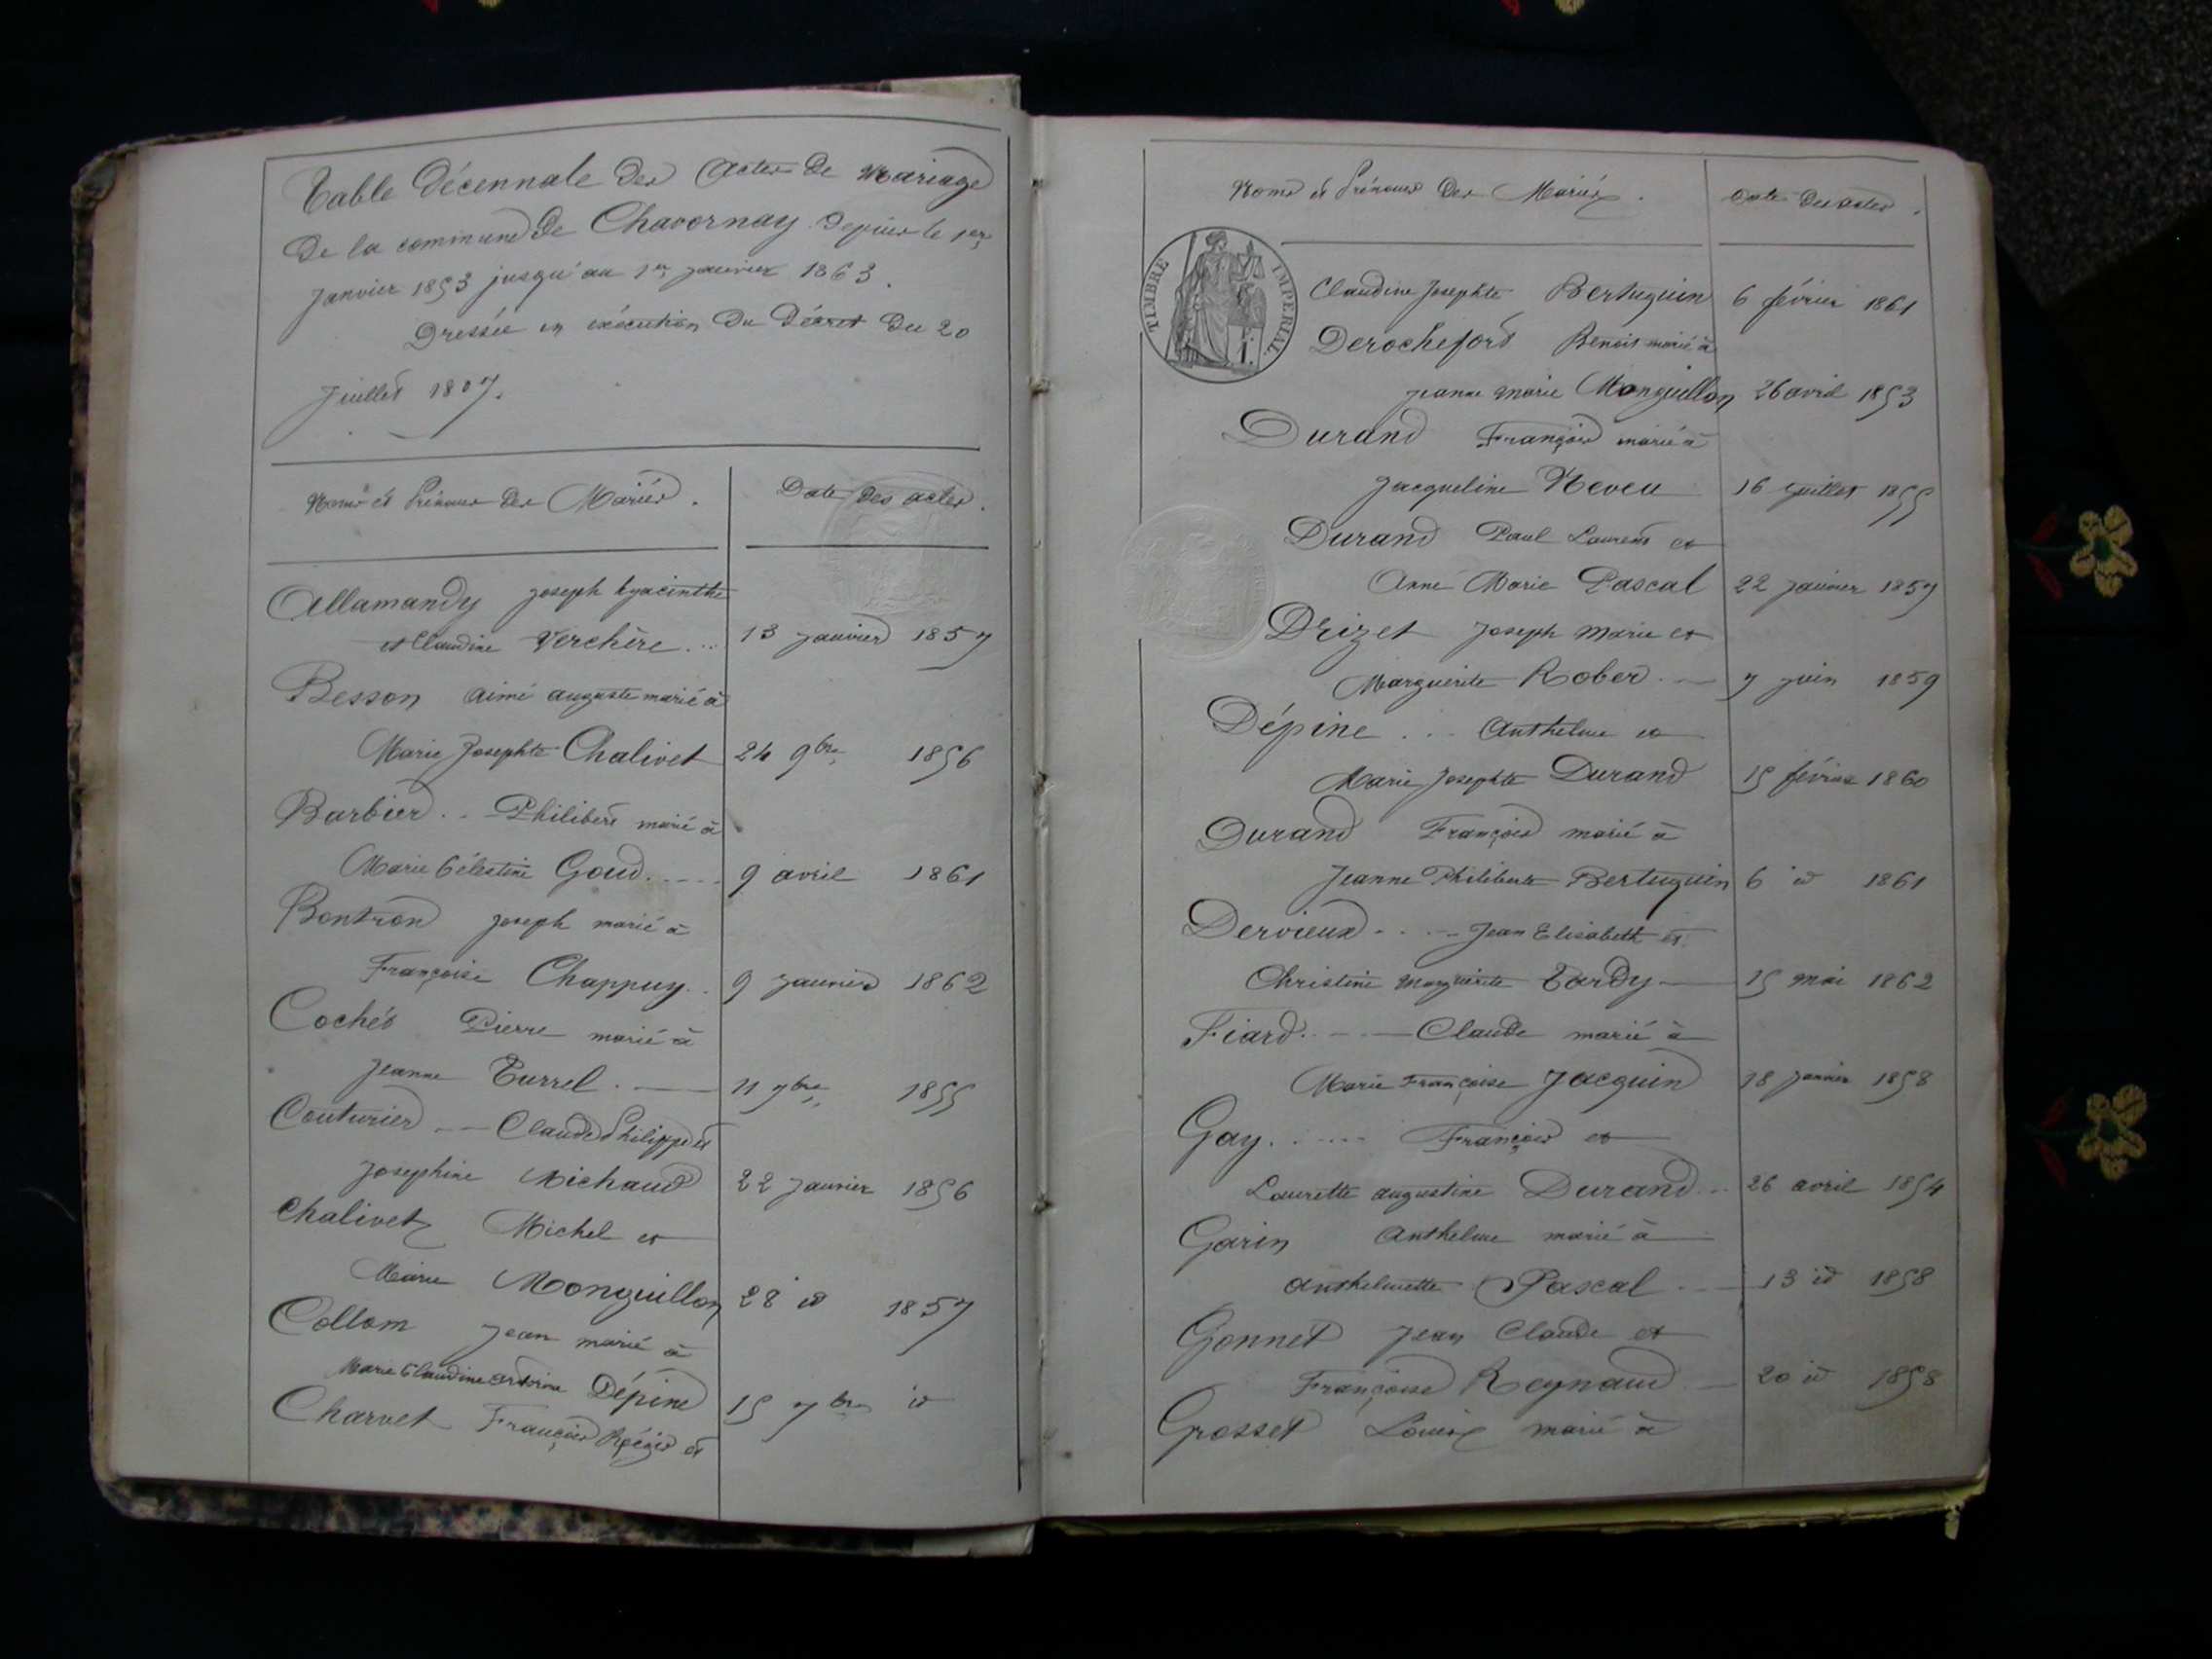 Table décennale des actes de Mariage
de la commune de Chavornay depuis le 1er
Janvier 1853 jusqu'au 1er Janvier 1863.
Dressée en exécution du Décret du 20
Juillet 1807.
Noms et Prénoms des Mariés. Date des actes.
Allamandy Joseph hyacinthe
et Claudine Verchère ... 13 Janvier 1857
Besson aimé auguste marié à
Marie Josephte Chalivet 24 9bre 1856
Barbier .. Philibert marié à
Marie Célestine Goud ..... 9 avril 1861
Bontron Joseph marié à
Françoise Chappuy .. 9 Janvier 1862
Cochet Pierre marié à
Jeanne Turrel . — 11 7bre 1855
Couturier — Claude Philippe et
Josephine Michaud 22 Janvier 1856
Chalivet Michel et
Marie Monguillon 28 id 1857
Collom Jean marié à
Marie Claudine Dépine 15 7bre id
Charvet François Régis et
Noms et Prénoms des Mariés. Date des actes.
TIMBRE IMPERIAL
1.
Claudine Josephte Bertuguin 6 février 1861
Derochefort Benoit marié à
Jeanne Marie Monguillon 26 avril 1853
Durand François marié à
Jacqueline Neveu 16 Juillet 1855
Durand Paul Laurent et
Anne Marie Pascal 22 Janvier 1857
Drizet Joseph Marie et
Marguerite Rober . — 7 Juin 1859
Dépine ... Anthelme et
Marie Josephte Durand 15 février 1860
Durand François marié à
Jeanne Philiberte Bertuguin 6 id 1861
Dervieux ..... Jean Elisabeth et
Christine Marguerite Tardy — 15 Mai 1862
Fiard. — Claude marié à
Marie Françoise Jacquin 18 Janvier 1858
Gay. ..... François et
Laurette augustine Durand ... 26 avril 1854
Garin Anthelme marié à
Anthelmette Pascal .. 13 id 1858
Gonnet Jean Claude et
Françoise Reynaud — 20 id 1858
Grosset Louis marié à